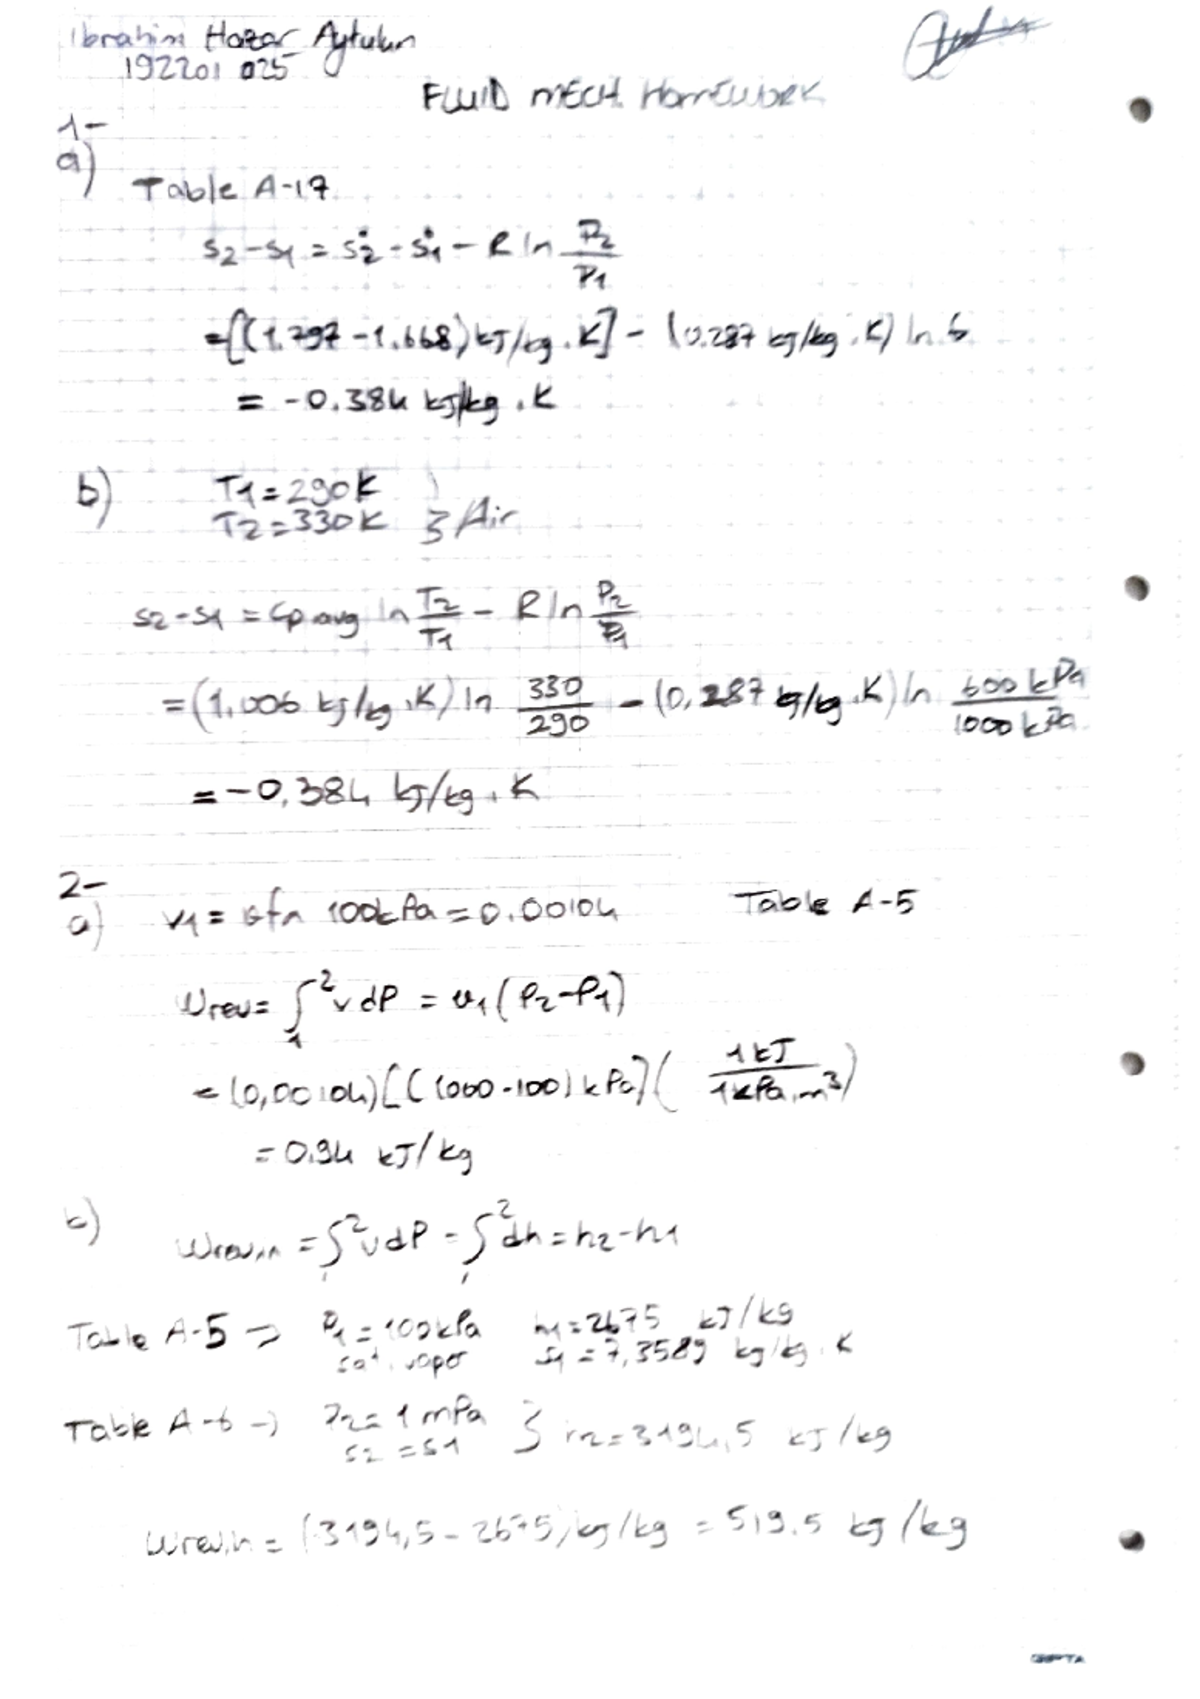 Ibrahim Hazar Aytulun
192201025
FLUID MECH. HOMEWORK
1-
a)
Table A-17
s2-s1 = s°2 - s°1 - R ln P2/P1
=[(1.797-1.668) kJ/kg.K] - (0.287 kJ/kg.K) ln 6
= -0.384 kJ/kg.K
b) T1=290K
T2=330K } Air
s2-s1 = Cp avg ln T2/T1 - R ln P2/P1
=(1.006 kJ/kg.K) ln 330/290 - (0,287 kJ/kg.K) ln 600 kPa/1000 kPa
= -0,384 kJ/kg.K
2-
a) v1 = 100kPa = 0.00104 Table A-5
Wrev= ∫₁² v dP = v1 (P2-P1)
= (0,00104)[(1000-100) kPa](1kJ/1kPa.m³)
= 0.94 kJ/kg
b) Wrev,in = ∫₁² v dP = ∫₁² dh = h2-h1
Table A-5 → P1 = 100kPa h1=2675 kJ/kg
sat. vapor s1 = 7,3589 kg/kg.K
Table A-6 → P2= 1 mPa
s2 = s1 } h2=3194,5 kJ/kg
Wrev,in = (3194,5-2675) kJ/kg = 519.5 kJ/kg
GIPTA